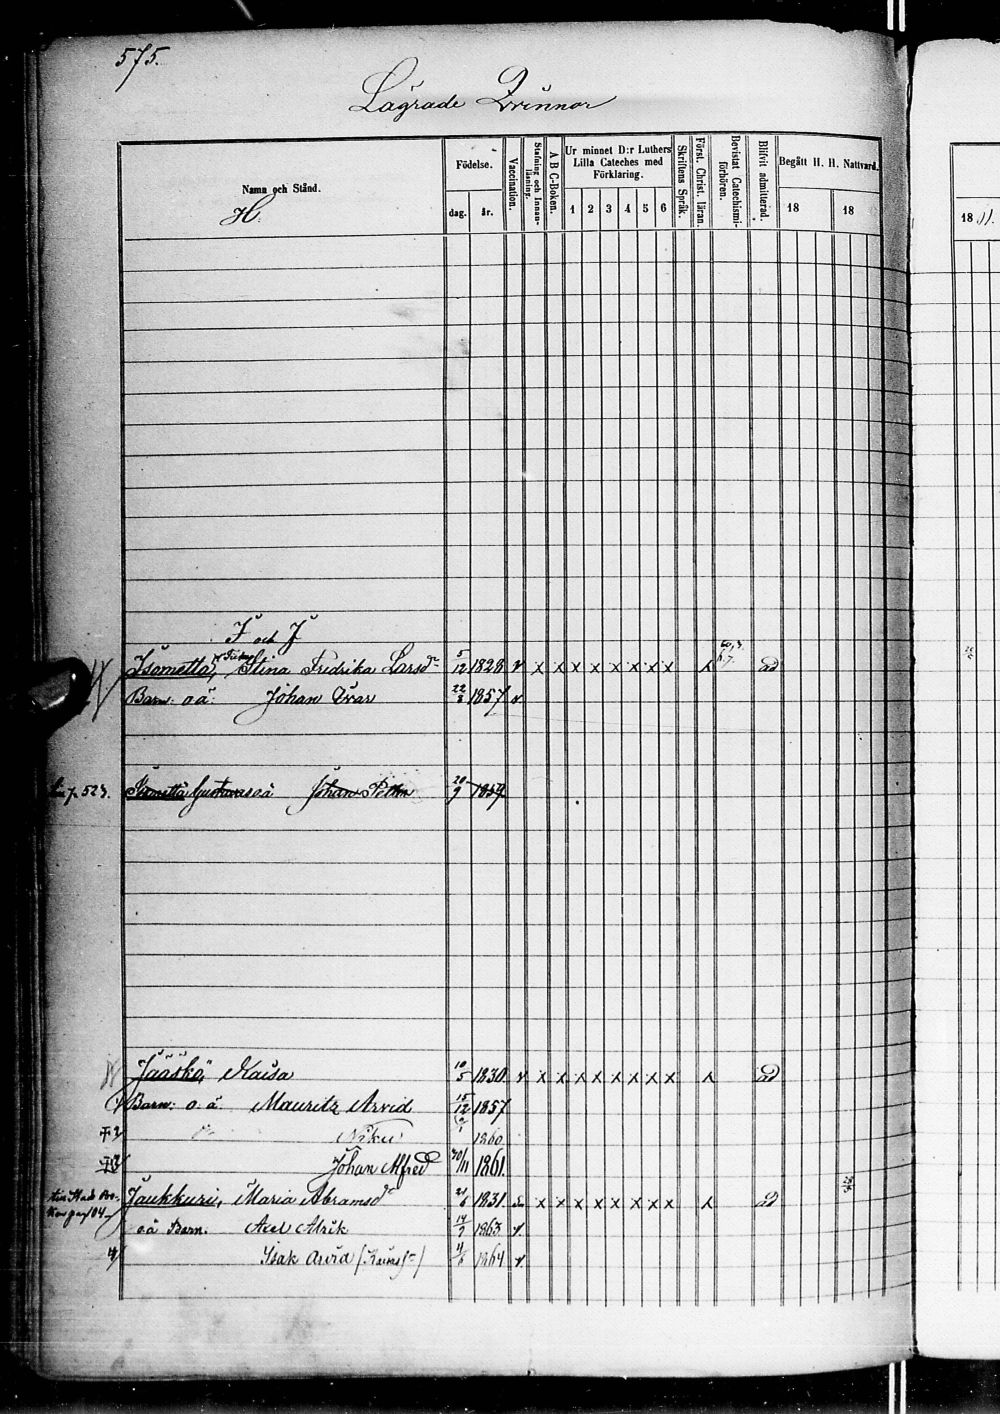 575.
Lagrade Qvinnor
Namn och Stånd.
H.
Födelse.
dag. år.
Vaccination.
Stafning och Innanläsning.
A B C-Boken.
Ur minnet D:r Luthers Lilla Cateches med Förklaring.
1 2 3 4 5 6
Skriftens Språk.
Först. Christ. läran.
Bevistat Catechismiförhören.
Blifvit admitterad.
Begått H. H. Nattvard.
18 18
18 81.
I och J
Isometta, Stina Fredrika Larsdr 5/12 1828 v x x x x x x x x x ad
Barn: oä: Johan Ivar 22/8 1857 v.
523. Isometta Gustavas oä Johan Petter 20/9 1859
Jääskö, Kaisa 10/5 1830. v x x x x x x x x x ad
Barn: o. ä Mauritz Arvid 15/12 1857
Niku 1860
Johan Alfred 30/11 1861
Jaukkuri, Maria Abramsdr 21/6 1831. x x x x x x x x ad
oä Barn. Axel Alrik 14/9 1863 v.
Isak Arvid 4/6 1864 v